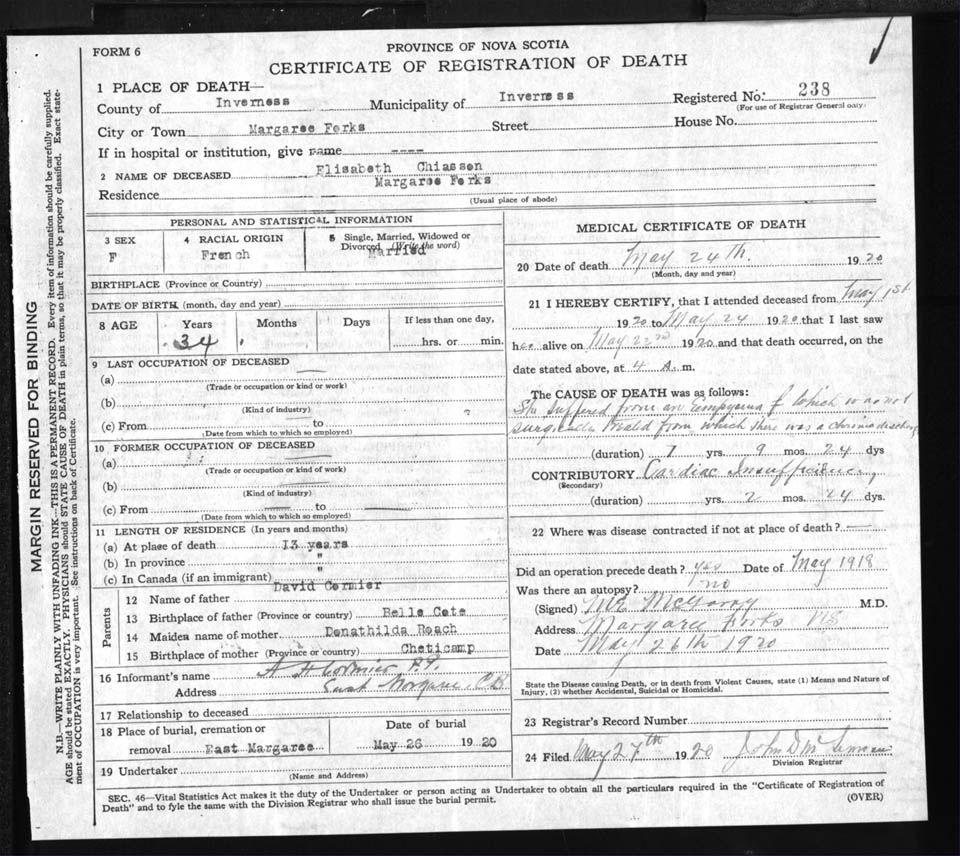 FORM 6
PROVINCE OF NOVA SCOTIA
CERTIFICATE OF REGISTRATION OF DEATH
1 PLACE OF DEATH—
County of Inverness Municipality of Inverness Registered No. 238
(For use of Registrar General only)
City or Town Margaree Forks Street House No.
If in hospital or institution, give name ----
2 NAME OF DECEASED Elisabeth Chiasson
Residence Margaree Forks
(Usual place of abode)
PERSONAL AND STATISTICAL INFORMATION
3 SEX 4 RACIAL ORIGIN 5 Single, Married, Widowed or Divorced (Write the word)
F French Married
BIRTHPLACE (Province or Country)
DATE OF BIRTH (month, day and year)
8 AGE Years Months Days If less than one day,
34 hrs. or min.
9 LAST OCCUPATION OF DECEASED
(a)
(Trade or occupation or kind or work)
(b)
(Kind of industry)
(c) From to
(Date from which to which so employed)
10 FORMER OCCUPATION OF DECEASED
(a)
(Trade or occupation or kind of work)
(b)
(Kind of industry)
(c) From to
(Date from which to which so employed)
11 LENGTH OF RESIDENCE (In years and months)
(a) At place of death 13 years
(b) In province "
(c) In Canada (if an immigrant) "
Parents
12 Name of father David Cormier
13 Birthplace of father (Province or country) Belle Cote
14 Maiden name of mother Donathilda Roach
15 Birthplace of mother (Province or country) Cheticamp
16 Informant's name Cormier P.P.
Address East Margaree C.B.
17 Relationship to deceased
18 Place of burial, cremation or Date of burial
removal East Margaree May 26 1920
19 Undertaker
(Name and Address)
MEDICAL CERTIFICATE OF DEATH
20 Date of death May 24th. 1920
(Month, day and year)
21 I HEREBY CERTIFY, that I attended deceased from May 1st
1920 to May 24 1920 that I last saw
her alive on May 22nd 1920 and that death occurred, on the
date stated above, at 4 A. m.
The CAUSE OF DEATH was as follows:
She suffered from an Empyema which was not
surgically treated from which there was a chronic discharge
(duration) 7 yrs. 9 mos. 24 dys
CONTRIBUTORY Cardiac Insufficiency
(Secondary)
(duration) yrs. 2 mos. 24 dys.
22 Where was disease contracted if not at place of death?
Did an operation precede death? yes Date of May 1918
Was there an autopsy? no
(Signed) M.D.
Address Margaree Forks NS
Date May 26th 1920
State the Disease causing Death, or in death from Violent Causes, state (1) Means and Nature of
Injury, (2) whether Accidental, Suicidal or Homicidal.
23 Registrar's Record Number
24 Filed May 27th 1920 John D
Division Registrar
SEC. 46—Vital Statistics Act makes it the duty of the Undertaker or person acting as Undertaker to obtain all the particulars required in the "Certificate of Registration of
Death" and to fyle the same with the Division Registrar who shall issue the burial permit.
(OVER)
MARGIN RESERVED FOR BINDING
N.B.—WRITE PLAINLY WITH UNFADING INK—THIS IS A PERMANENT RECORD. Every item of information should be carefully supplied.
AGE should be stated EXACTLY. PHYSICIANS should STATE CAUSE OF DEATH in plain terms, so that it may be properly classified. Exact state-
ment of OCCUPATION is very important. See instructions on back of Certificate.